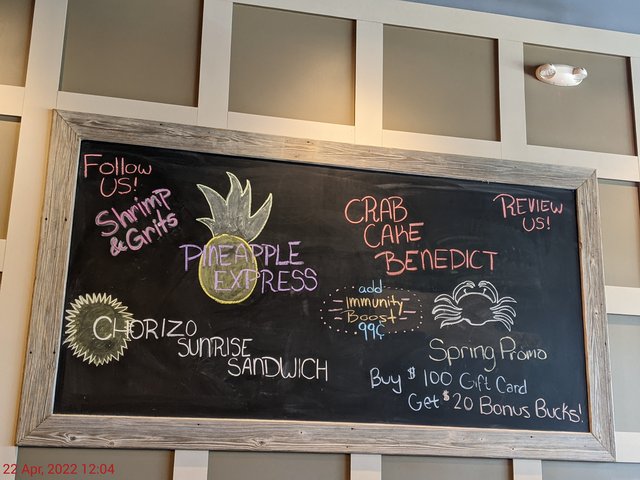 Follow
US!
Shrimp
& Grits
PINEAPPLE
EXPRESS
CHORIZO
SUNRISE
SANDWICH
CRAB
CAKE
BENEDICT
REVIEW
US!
add
Immunity
Boost
99¢
Spring Promo
Buy $100 Gift Card
Get $20 Bonus Bucks!
22 Apr, 2022 12:04